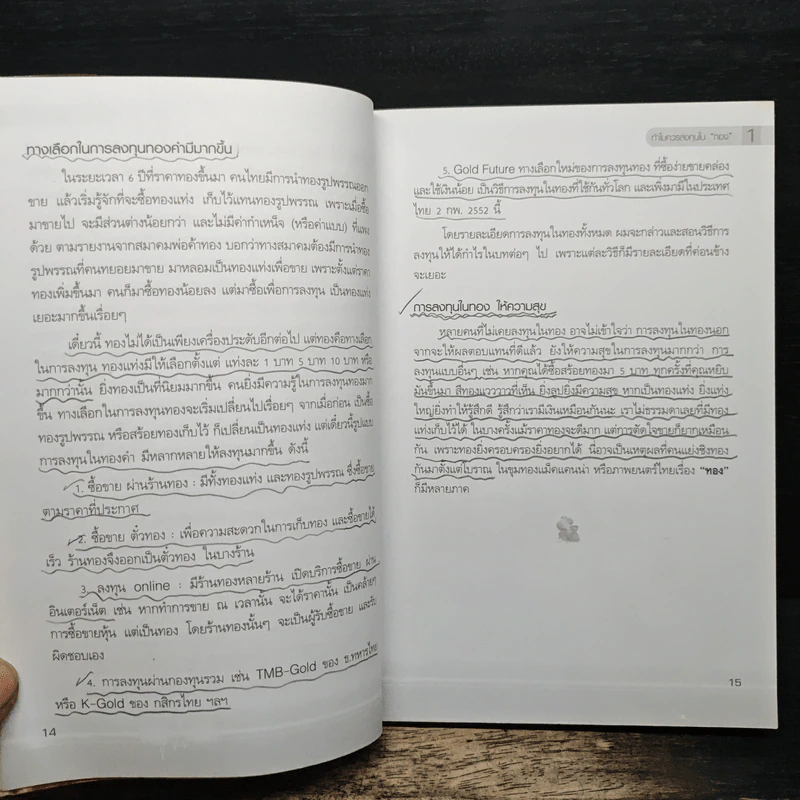 ทางเลือกในการลงทุนทองคำมีมากขึ้น
ในระยะเวลา 6 ปีที่ราคาทองขึ้นมา คนไทยมีการนำทองรูปพรรณออก
ขาย แล้วเริ่มรู้จักที่จะซื้อทองแท่ง เก็บไว้แทนทองรูปพรรณ เพราะเมื่อซื้อ
มาขายไป จะมีส่วนต่างน้อยกว่า และไม่มีค่ากำเหน็จ (หรือค่าแบบ) ที่แพง
ด้วย ตามรายงานจากสมาคมพ่อค้าทอง บอกว่าทางสมาคมต้องมีการนำทอง
รูปพรรณที่คนทยอยมาขาย มาหลอมเป็นทองแท่งเพื่อขาย เพราะตั้งแต่ราคา
ทองเพิ่มขึ้นมา คนก็มาซื้อทองน้อยลง แต่มาซื้อเพื่อการลงทุน เป็นทองแท่ง
เยอะมากขึ้นเรื่อยๆ
เดี๋ยวนี้ ทองไม่ได้เป็นเพียงเครื่องประดับอีกต่อไป แต่ทองคือทางเลือก
ในการลงทุน ทองแท่งมีให้เลือกตั้งแต่ แท่งละ 1 บาท 5 บาท 10 บาท หรือ
มากกว่านั้น ยิ่งทองเป็นที่นิยมมากขึ้น คนยิ่งมีความรู้ในการลงทุนทองมาก
ขึ้น ทางเลือกในการลงทุนทองจะเริ่มเปลี่ยนไปเรื่อยๆ จากเมื่อก่อน เป็นซื้อ
ทองรูปพรรณ หรือสร้อยทองเก็บไว้ ก็เปลี่ยนเป็นทองแท่ง แต่เดี๋ยวนี้รูปแบบ
การลงทุนในทองคำ มีหลากหลายให้ลงทุนมากขึ้น ดังนี้
1. ซื้อขาย ผ่านร้านทอง : มีทั้งทองแท่ง และทองรูปพรรณ ซึ่งซื้อขาย
ตามราคาที่ประกาศ
2. ซื้อขาย ตั๋วทอง : เพื่อความสะดวกในการเก็บทอง และซื้อขายได้
เร็ว ร้านทองจึงออกเป็นตั๋วทอง ในบางร้าน
3. ลงทุน online : มีร้านทองหลายร้าน เปิดบริการซื้อขาย ผ่าน
อินเตอร์เน็ต เช่น หากทำการขาย ณ เวลานั้น จะได้ราคานั้น เป็นคล้ายๆ
การซื้อขายหุ้น แต่เป็นทอง โดยร้านทองนั้นๆ จะเป็นผู้รับซื้อขาย และรับ
ผิดชอบเอง
4. การลงทุนผ่านกองทุนรวม เช่น TMB-Gold ของ ธ.ทหารไทย
หรือ K-Gold ของ กสิกรไทย ฯลฯ
14
ทำไมควรลงทุนใน "ทอง" 1
5. Gold Future ทางเลือกใหม่ของการลงทุนทอง ที่ซื้อง่ายขายคล่อง
และใช้เงินน้อย เป็นวิธีการลงทุนในทองที่ใช้กันทั่วโลก และเพิ่งมามีในประเทศ
ไทย 2 กพ. 2552 นี้
โดยรายละเอียดการลงทุนในทองทั้งหมด ผมจะกล่าวและสอนวิธีการ
ลงทุนให้ได้กำไรในบทต่อๆ ไป เพราะแต่ละวิธีก็มีรายละเอียดที่ค่อนข้าง
จะเยอะ
การลงทุนในทอง ให้ความสุข
หลายคนที่ไม่เคยลงทุนในทอง อาจไม่เข้าใจว่า การลงทุนในทองนอก
จากจะให้ผลตอบแทนที่ดีแล้ว ยังให้ความสุขในการลงทุนมากกว่า การ
ลงทุนแบบอื่นๆ เช่น หากคุณได้ซื้อสร้อยทองมา 5 บาท ทุกครั้งที่คุณหยิบ
มันขึ้นมา สีทองแวววาวที่เห็น ยิ่งลูบยิ่งมีความสุข หากเป็นทองแท่ง ยิ่งแท่ง
ใหญ่ยิ่งทำให้รู้สึกดี รู้สึกว่าเรามีเงินเหมือนกันนะ เราไม่ธรรมดาเลยที่มีทอง
แท่งเก็บไว้ได้ ในบางครั้งแม้ราคาทองจะดีมาก แต่การตัดใจขายก็ยากเหมือน
กัน เพราะทองยิ่งครอบครองยิ่งอยากได้ นี่อาจเป็นเหตุผลที่คนแย่งชิงทอง
กันมาตั้งแต่โบราณ ในขุมทองแม็คแคนน่า หรือภาพยนตร์ไทยเรื่อง "ทอง"
ก็มีหลายภาค
15